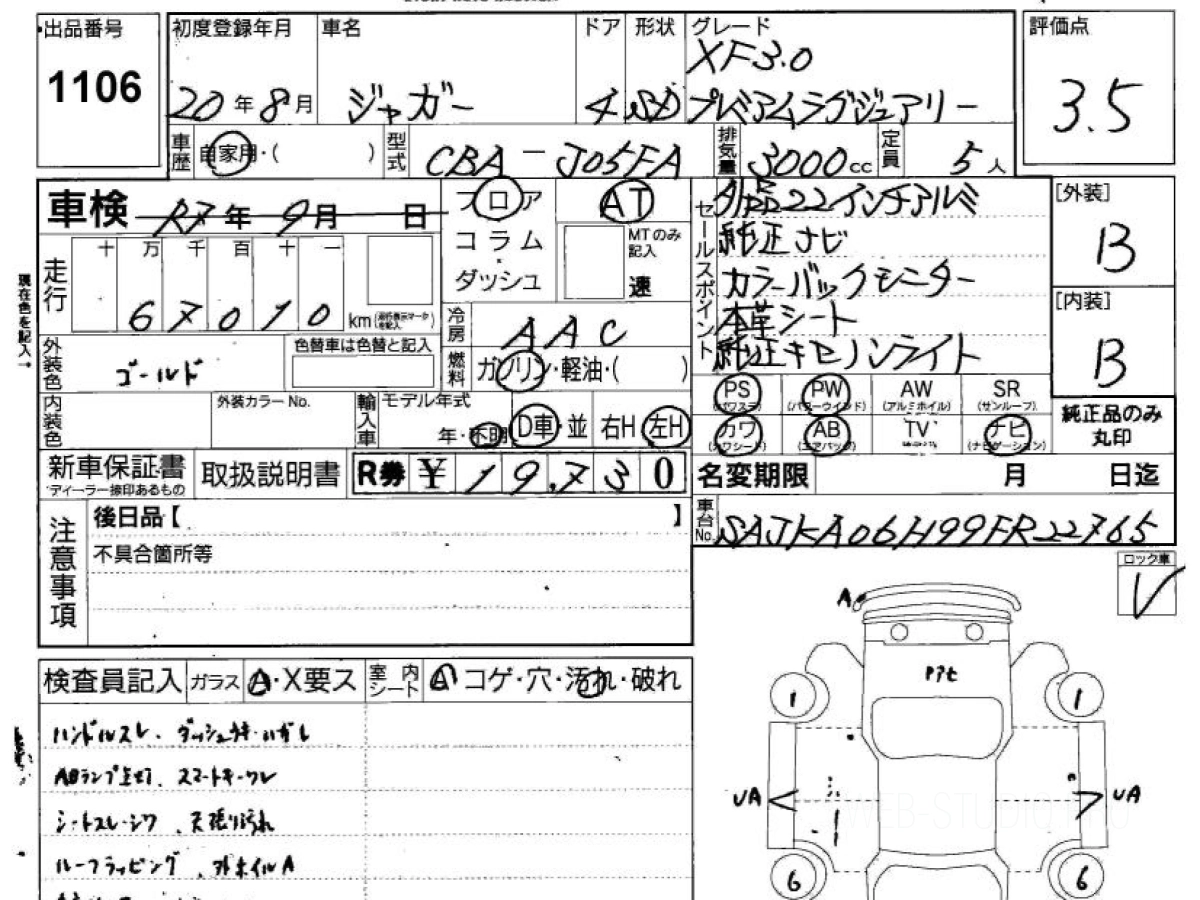 出品番号
1106
初度登録年月 車名 ドア 形状 グレード
XF3.0
20年8月 ジャガー 4 SD プレミアムラグジュアリー
評価点
3.5
車歴 自家用・( ) 型式 CBA-J05FA 排気量 3000cc 定員 5人
車検 R7年9月 日
フロア AT
コラム MTのみ記入
ダッシュ 速
セールスポイント
外品22インチアルミ
純正ナビ
カラーバックモニター
本革シート
純正キセノンライト
[外装]
B
[内装]
B
現在色を記入→
走行 十 万 千 百 十 一
67010 km
冷房 AAC
外装色 ゴールド 色替車は色替と記入
燃料 ガソリン・軽油・( )
内装色 外装カラーNo. 輸入車 モデル年式
年・不明 D車・並 右H 左H
PS PW AW SR
(パワステ) (パワーウインド) (アルミホイル) (サンルーフ)
カワ AB TV ナビ
(カワシート) (エアバッグ) (ナビゲーション)
純正品のみ
丸印
新車保証書 取扱説明書 R券 ¥19,730
ディーラー捺印あるもの
名変期限 月 日迄
車台No. SAJKA06H99FR22765
注意事項
後日品【 】
不具合箇所等
ロック車
検査員記入 ガラス A・X要ス 室内シート コゲ・穴・汚れ・破れ
ハンドルスレ、ダッシュウキ・ハガレ
ABランプ点灯、スマートキーワレ
シートスレ・シワ、天張り汚れ
ルーフラッピング、外ホイルA
A
1 1
UA UA
6 6
WEB-STUDIO.PRO